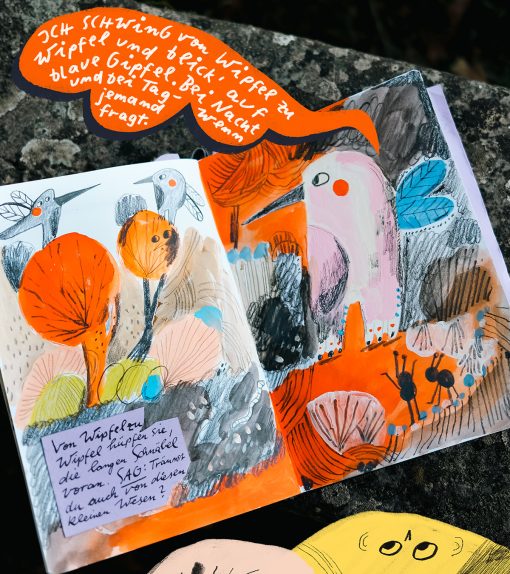 ICH SCHWING von Wipfel zu
Wipfel und blick' auf
blaue Gipfel. Bei Nacht
und bei Tag - wenn
jemand
fragt.
Von Wipfel zu
Wipfel hüpfen sie,
die langen Schnäbel
voran. SAG: Träumst
du auch von diesen
kleinen Wesen?